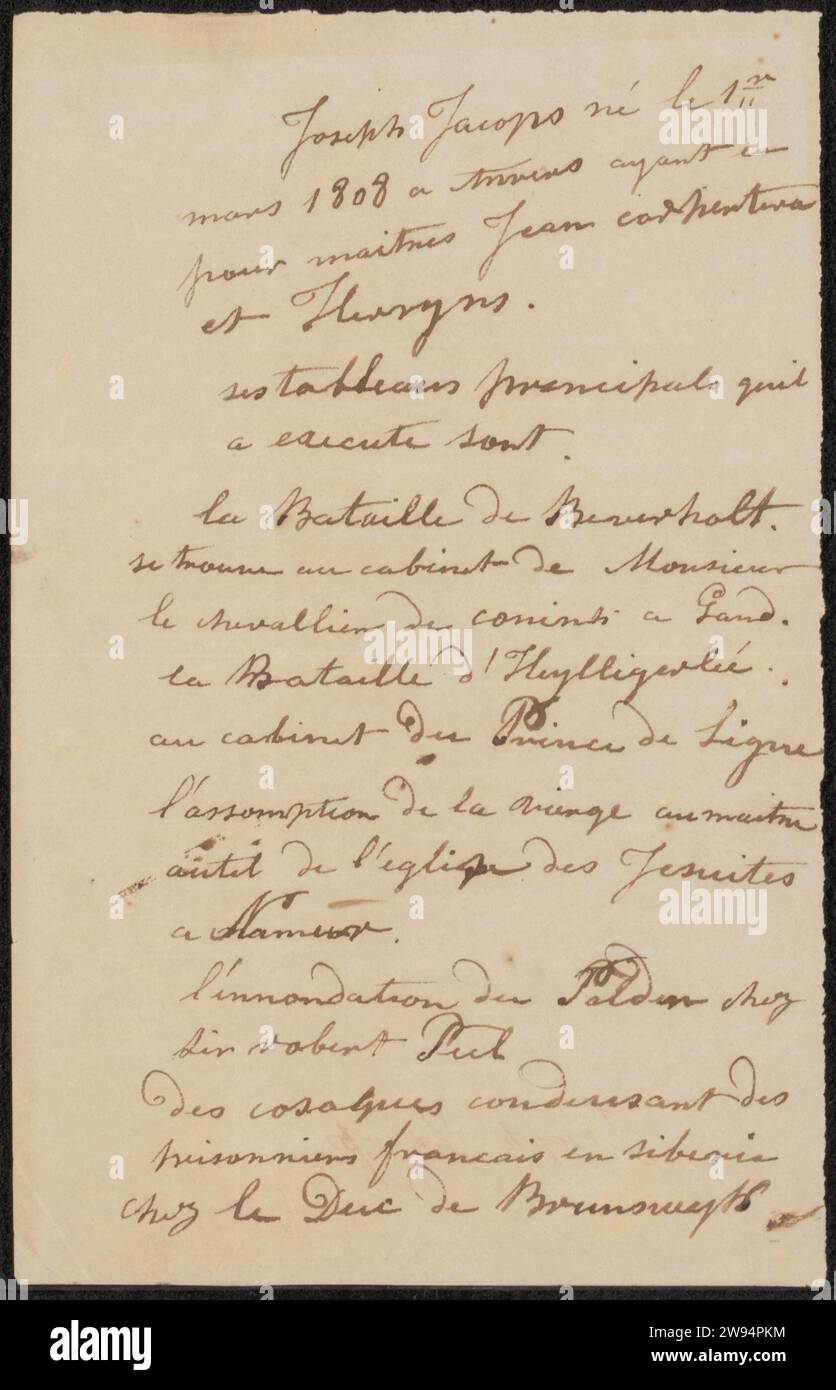 Joseph Jacops né le 1er
mars 1808 a Anvers ayant eu
pour maitres Jean carpentero
et Herryns.
ses tableaus principals quil
a execute sont.
la Bataille de Beverholt.
se trouve au cabinet de Monsieur
le chevallier de coninck a Gand.
la Bataille d'Heylligerleé.
au cabinet du Prince de Ligne
l'assomption de la vierge au maitre
autel de l'eglise des Jesuites
a Nameur.
l'innondation du Polder chez
sir robert Peel
des cosaques conduisant des
prisonniers francais en siberie
chez le Duc de Brunswyk
alamy
Image ID: 2W94PKM
www.alamy.com